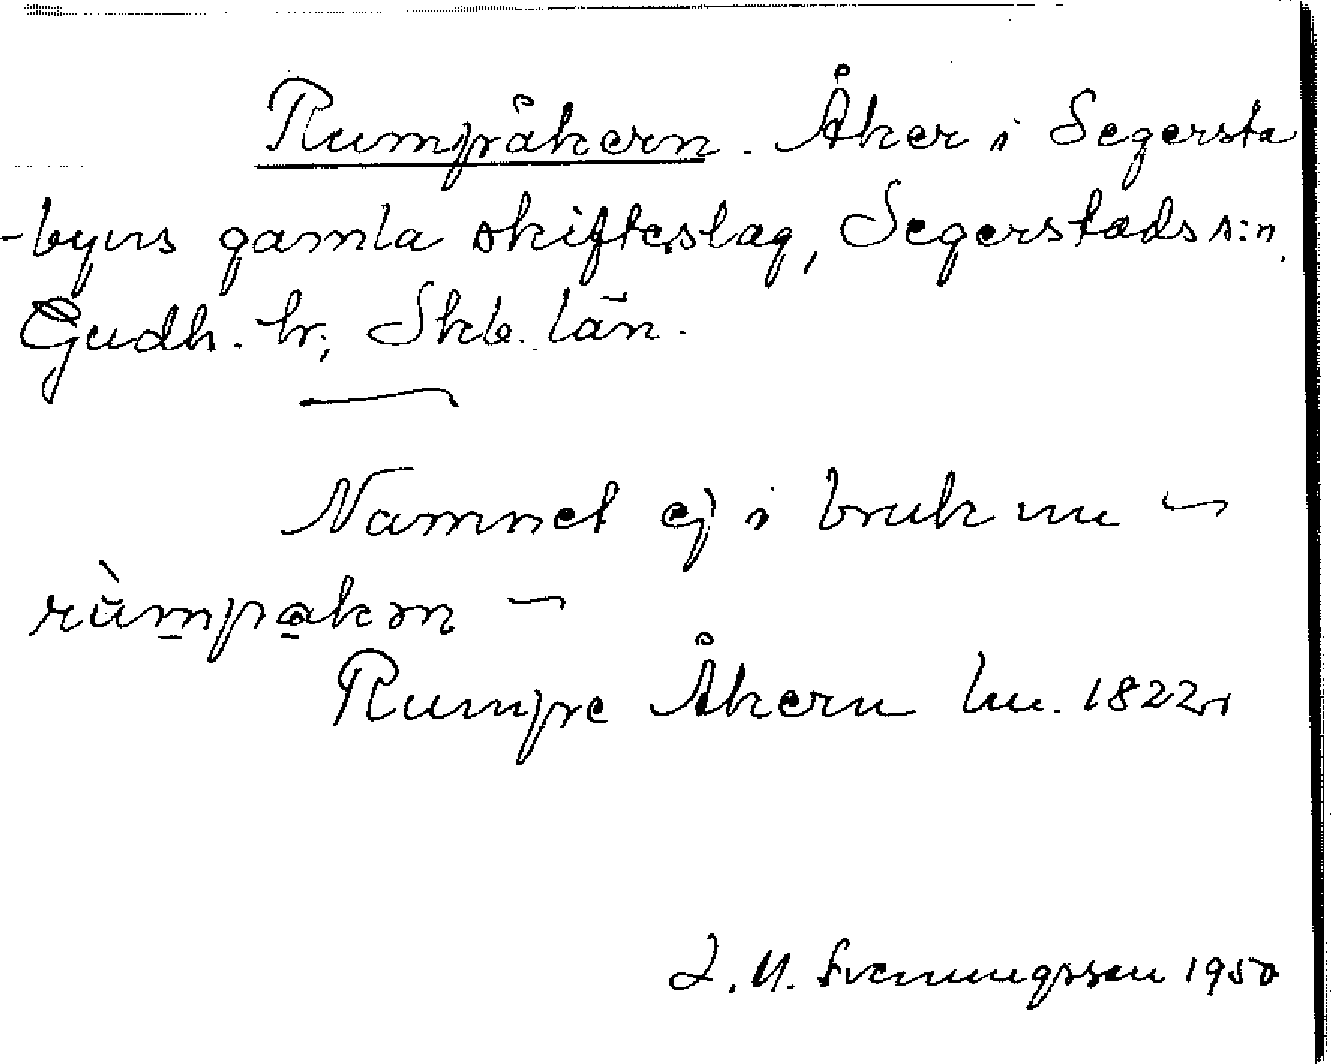 Rumpåkern. Åker i Segersta
-byns gamla skifteslag, Segerstads s:n,
Gudh. hr, Skb. län.
Namnet ej i bruk nu —
rùmpakən —
Rumpe Åkern hu. 1822
J. U. Svenungsson 1950